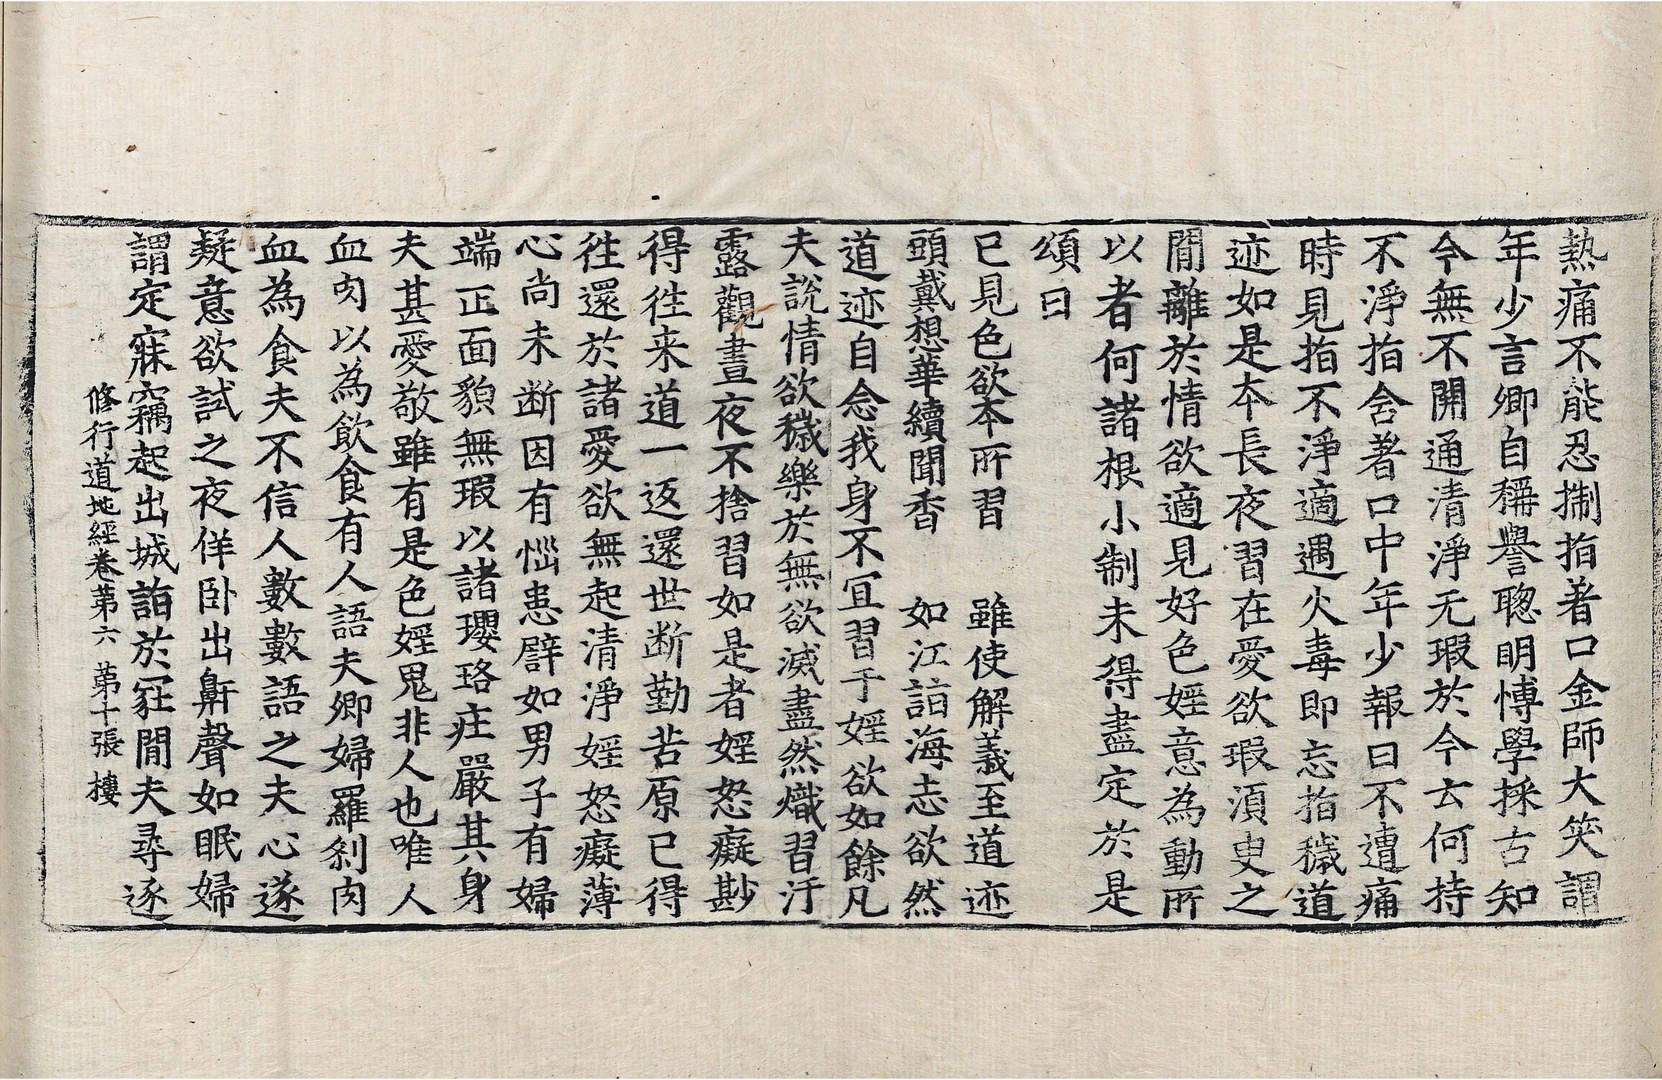 熱痛不能忍掣指著口金師大笑謂
年少言卿自稱譽聦明博學採古知
今無不開通清淨无瑕於今云何持
不淨指含著口中年少報曰不遭痛
時見指不淨適遇火毒即忘指穢道
迹如是本長夜習在愛欲瑕湏臾之
閒離於情欲適見好色婬意為動所
以者何諸根小制未得盡定於是
頌曰
已見色欲本所習　雖使解義至道迹
頭戴想華續聞香　如江詣海志欲然
道迹自念我身不宜習于婬欲如餘凡
夫說情欲穢樂於無欲滅盡然熾習汙
露觀晝夜不捨習如是者婬怒癡尠
得徃来道一返還世断勤苦原已得
徃還於諸愛欲無起清淨婬怒癡薄
心尚未断因有惱患譬如男子有婦
端正面貌無瑕以諸瓔珞莊嚴其身
夫甚愛敬雖有是色婬鬼非人也唯人
血肉以為飲食有人語夫卿婦羅剎肉
血為食夫不信人數數語之夫心遂
疑意欲試之夜佯卧出鼾聲如眠婦
謂定寐竊起出城詣於冡閒夫尋逐
修行道地經卷苐六　苐十張　樓